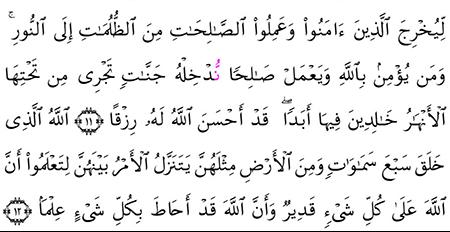 لِّيُخْرِجَ الَّذِينَ ءَامَنُوا۟ وَعَمِلُوا۟ الصَّـٰلِحَـٰتِ مِنَ الظُّلُمَـٰتِ إِلَى النُّورِ ۚ
وَمَن يُؤْمِنۢ بِاللَّهِ وَيَعْمَلْ صَـٰلِحًا نُّدْخِلْهُ جَنَّـٰتٍ تَجْرِى مِن تَحْتِهَا
الْأَنْهَـٰرُ خَـٰلِدِينَ فِيهَا أَبَدًا ۖ قَدْ أَحْسَنَ اللَّهُ لَهُۥ رِزْقًا ﴿١١﴾ اللَّهُ الَّذِى
خَلَقَ سَبْعَ سَمَـٰوَٰتٍ وَمِنَ الْأَرْضِ مِثْلَهُنَّ يَتَنَزَّلُ الْأَمْرُ بَيْنَهُنَّ لِتَعْلَمُوٓا۟ أَنَّ
اللَّهَ عَلَىٰ كُلِّ شَىْءٍ قَدِيرٌ وَأَنَّ اللَّهَ قَدْ أَحَاطَ بِكُلِّ شَىْءٍ عِلْمًۢا ﴿١٢﴾